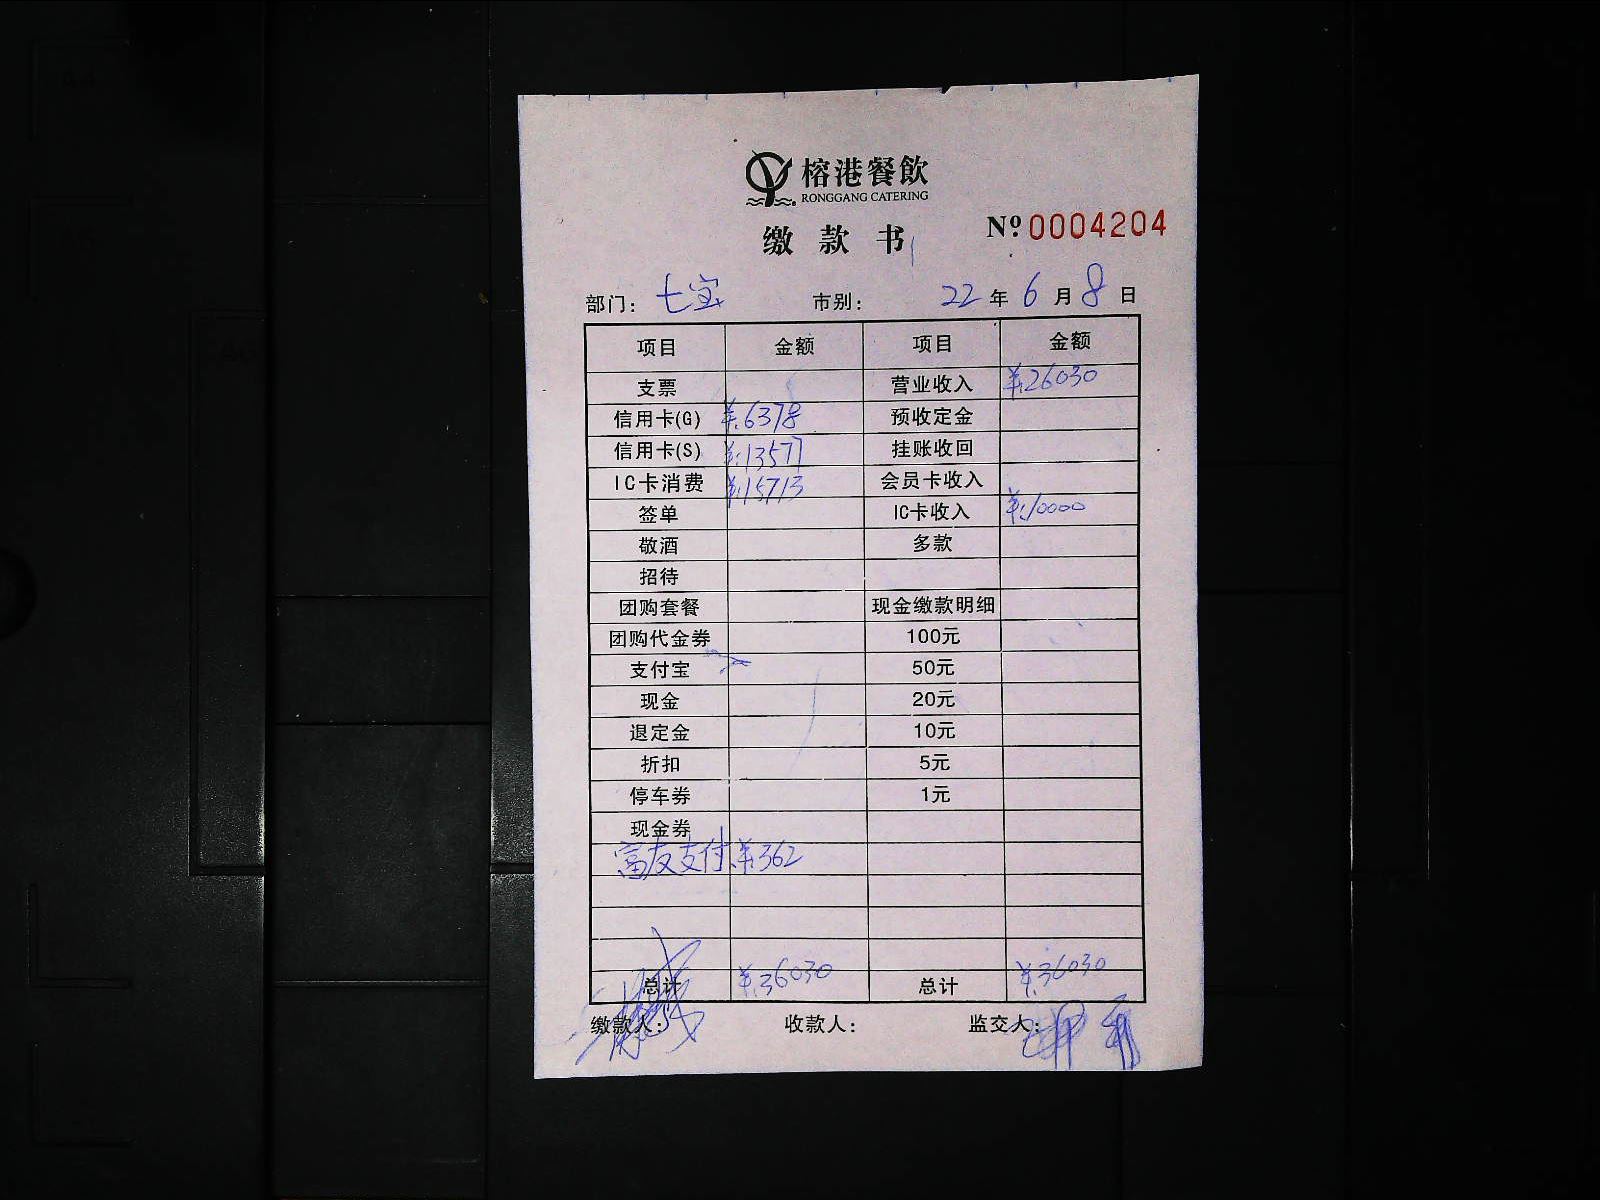 榕港餐飲
RONGGANG CATERING
缴款书
№ 0004204
部门：七宝 市别： 22年6月8日
项目 金额 项目 金额
支票 营业收入 ¥:26030
信用卡(G) ¥:6378 预收定金
信用卡(S) ¥:13577 挂账收回
IC卡消费 ¥:15713 会员卡收入
签单 IC卡收入 ¥:10000
敬酒 多款
招待
团购套餐 现金缴款明细
团购代金券 100元
支付宝 50元
现金 20元
退定金 10元
折扣 5元
停车券 1元
现金券
富友支付 ¥:362
总计 ¥:36030 总计 ¥:36030
缴款人： 收款人： 监交人：